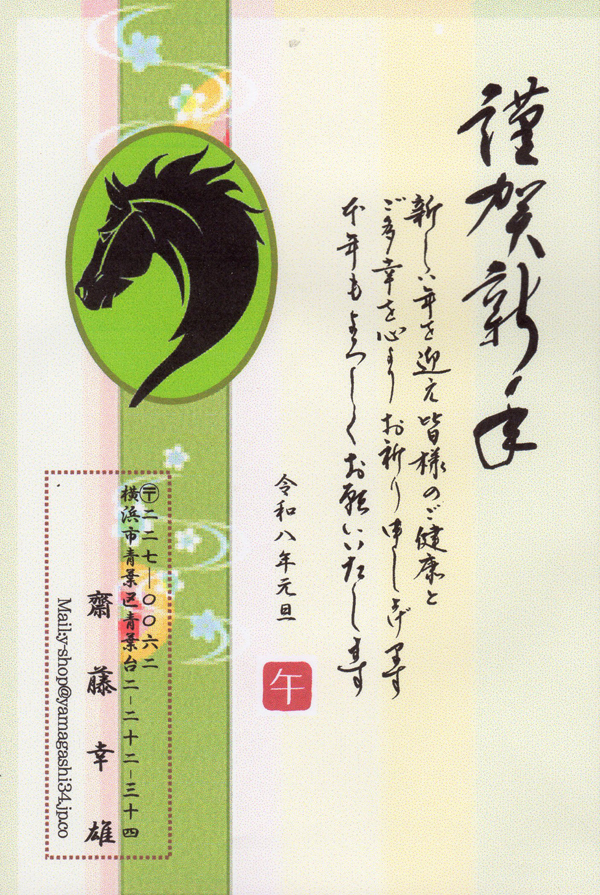 謹賀新年
新しい年を迎え皆様のご健康と
ご多幸を心よりお祈り申し上げます
本年もよろしくお願いいたします
令和八年元旦
午
〒二二七―〇〇六二
横浜市青葉区青葉台二―二十二―三十四
齋藤幸雄
Mail:y-shop@yamagashi34.jp.co